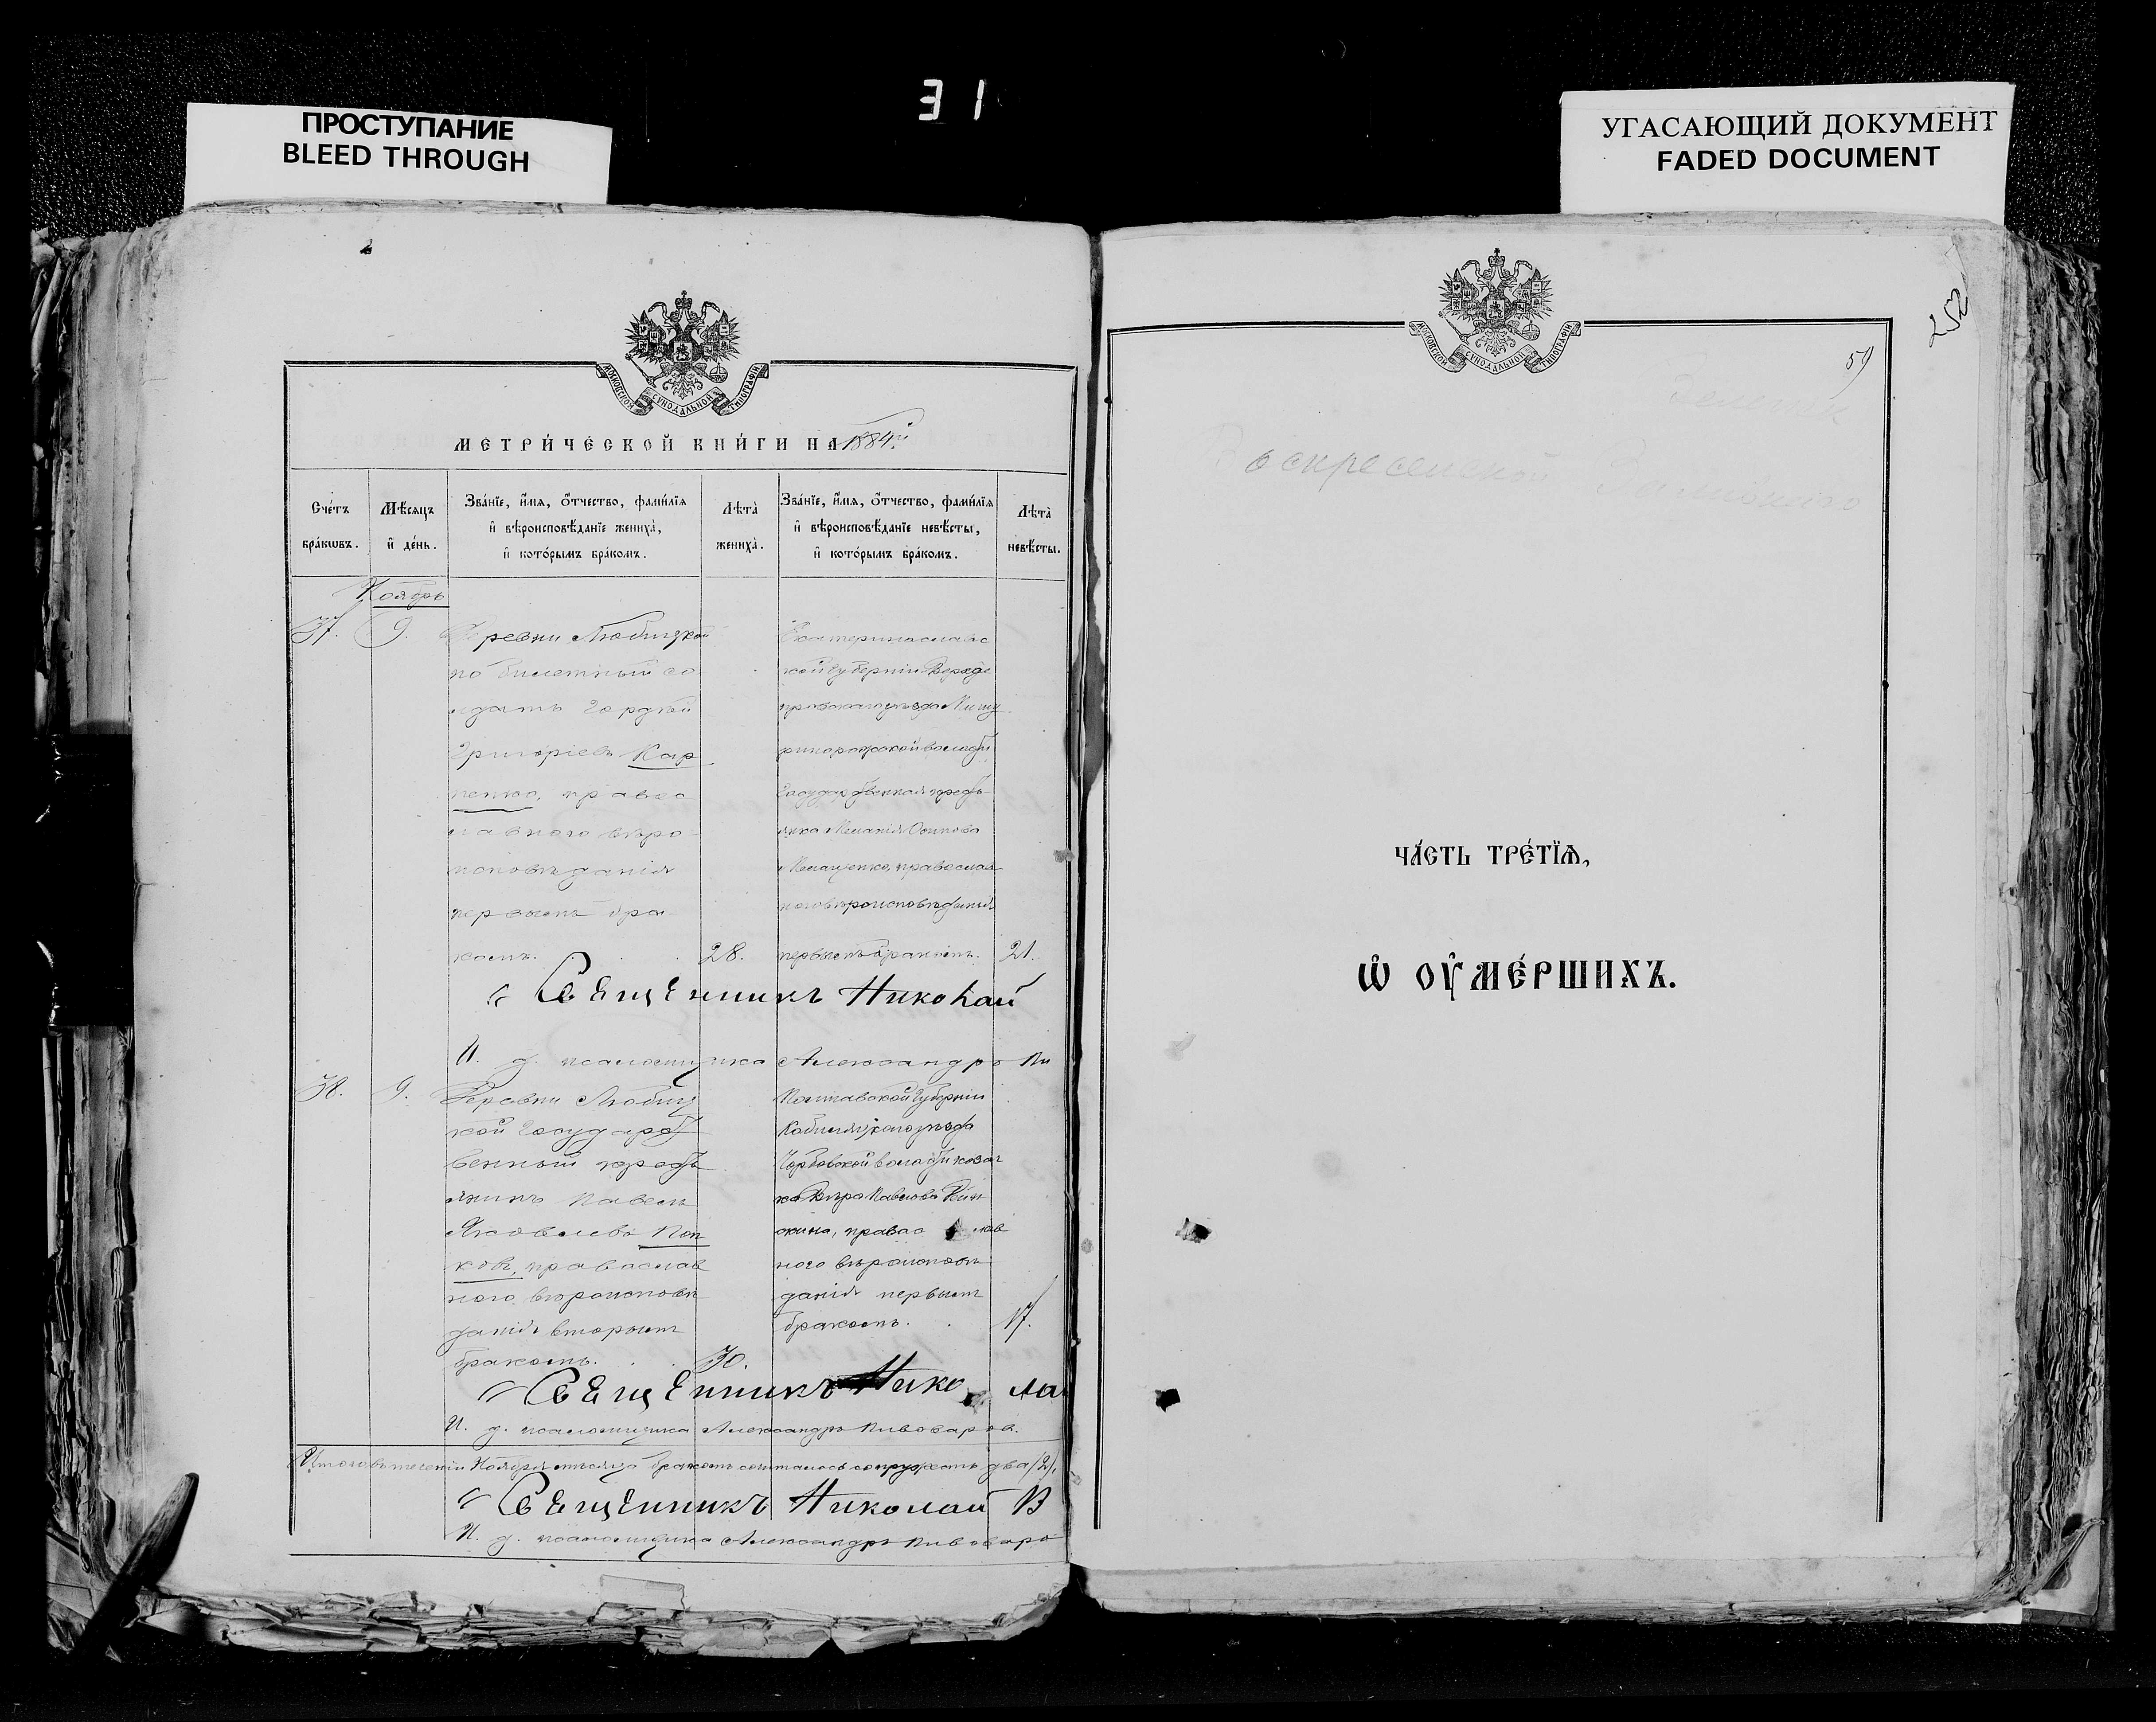 31
ПРОСТУПАНИЕ
BLEED THROUGH
УГАСАЮЩИЙ ДОКУМЕНТ
FADED DOCUMENT
МОСКОВСКОЙ СѴНОДАЛЬНОЙ ТИПОГРАФІИ
МЕТРИ́ЧЕСКОЙ КНИ́ГИ НА 1884й
Сче́тъ бра́кѡвъ.
Мѣ́сяцъ и҆ де́нь.
Зва́нїе, и҆́мѧ, ѻ҆́тчество, фами́лїѧ
и҆ вѣроисповѣ́данїе жениха̀,
и҆ кото́рымъ бра́комъ.
Лѣ́та̀ жениха̀.
Зва́нїе, и҆́мѧ, ѻ҆́тчество, фами́лїѧ
и҆ вѣроисповѣ́данїе невѣ́сты,
и҆ кото́рымъ бра́комъ.
Лѣ́та̀ невѣ́сты.
Ноябрь
37. 9.
Деревни Любицкой
по билетный со
лдатъ Гордѣй
Григоріевъ Кар
пенко, правос
лавного вѣро
исповѣданія
первымъ бра
комъ. 28.
Екатеринославс
кой губерніи Верхдне
провскаго уѣзда Мишу
ринорожской волости
Государственная кресть
янка Меланія Осипова
православ
ного вѣроисповѣданія
первымъ бракомъ. 21.
Священникъ Николай
И. д. псаломщика Александръ Пи
38. 9.
Деревни Любиц
кой Государст
венный кресть
янинъ Павелъ
Яковлевъ Поп
ковъ, православ
ного вѣроисповѣ
данія вторымъ
бракомъ. 30.
Полтавской Губерніи
Кобыляцкаго уѣзда
волости козач
ка Вѣра Павлова
правос лав
ного вѣроисповѣ
данія первымъ
бракомъ. 17.
Священникъ Нико ла
И. д. псаломщика Александръ Пивоваров.
Итого въ теченіи Ноября мѣсяца бракомъ сочеталось супружествъ два (2).
Священникъ Николай В
И. д. псаломщика Александръ Пивоваро
МОСКОВСКОЙ СѴНОДАЛЬНОЙ ТИПОГРАФІИ
252
59
Воскресенской
ЧА́СТЬ ТРЕ́ТЇѦ,
Ѡ҆ ОУ҆МЕ́РШИХЪ.